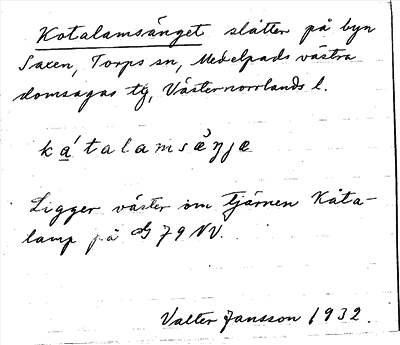 Kotalamsänget slåtter på byn
Saxen, Torps sn, Medelpads västra
domsagas tg, Västernorrlands l.
Ligger väster om tjärnen Kåta-
lamp på G 79 NV.
Valter Jansson 1932.